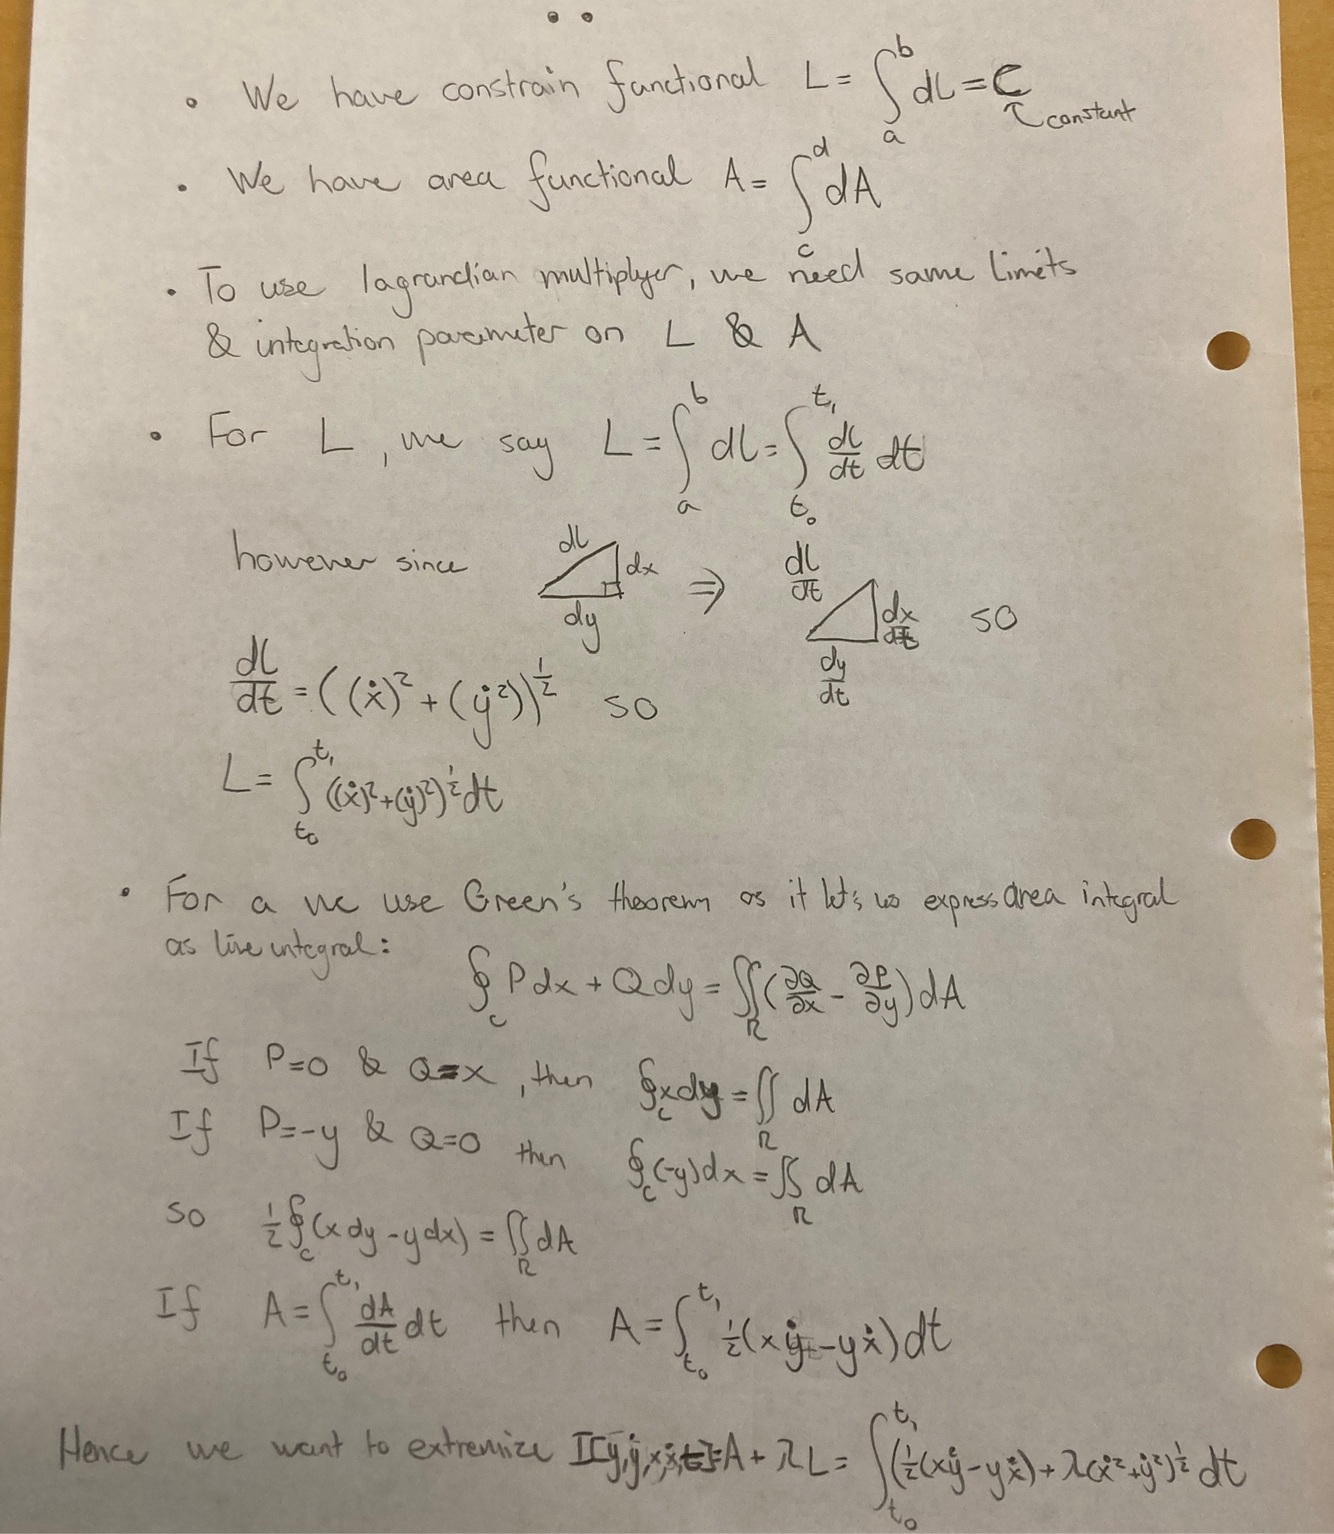 • We have constrain functional L = ∫_a^b dL = C
↑ constant
• We have area functional A = ∫_c^d dA
• To use lagrandian multiplyer, we need same limits
& integration parameter on L & A
• For L, we say L = ∫_a^b dL = ∫_{t₀}^{t₁} dl/dt dt
however since dl dx dy ⇒ dl/dt dx/dt dy/dt so
dl/dt = ((ẋ)² + (ẏ²))^{1/2} so
L = ∫_{t₀}^{t₁} ((ẋ)² + (ẏ)²)^{1/2} dt
• For a we use Green's theorem as it let's us express area integral
as line integral:
∮_c P dx + Q dy = ∬_R (∂Q/∂x - ∂P/∂y) dA
If P=0 & Q=x, then ∮_c x dy = ∬_R dA
If P=-y & Q=0 then ∮_c (-y) dx = ∬_R dA
so ½ ∮_c (x dy - y dx) = ∬_R dA
If A = ∫_{t₀}^{t₁} dA/dt dt then A = ∫_{t₀}^{t₁} ½(xẏ - yẋ) dt
Hence we want to extremize I[y,ẏ,x,ẋ,t] = A + λL = ∫_{t₀}^{t₁} (½(xẏ - yẋ) + λ(ẋ² + ẏ²)^{1/2} dt